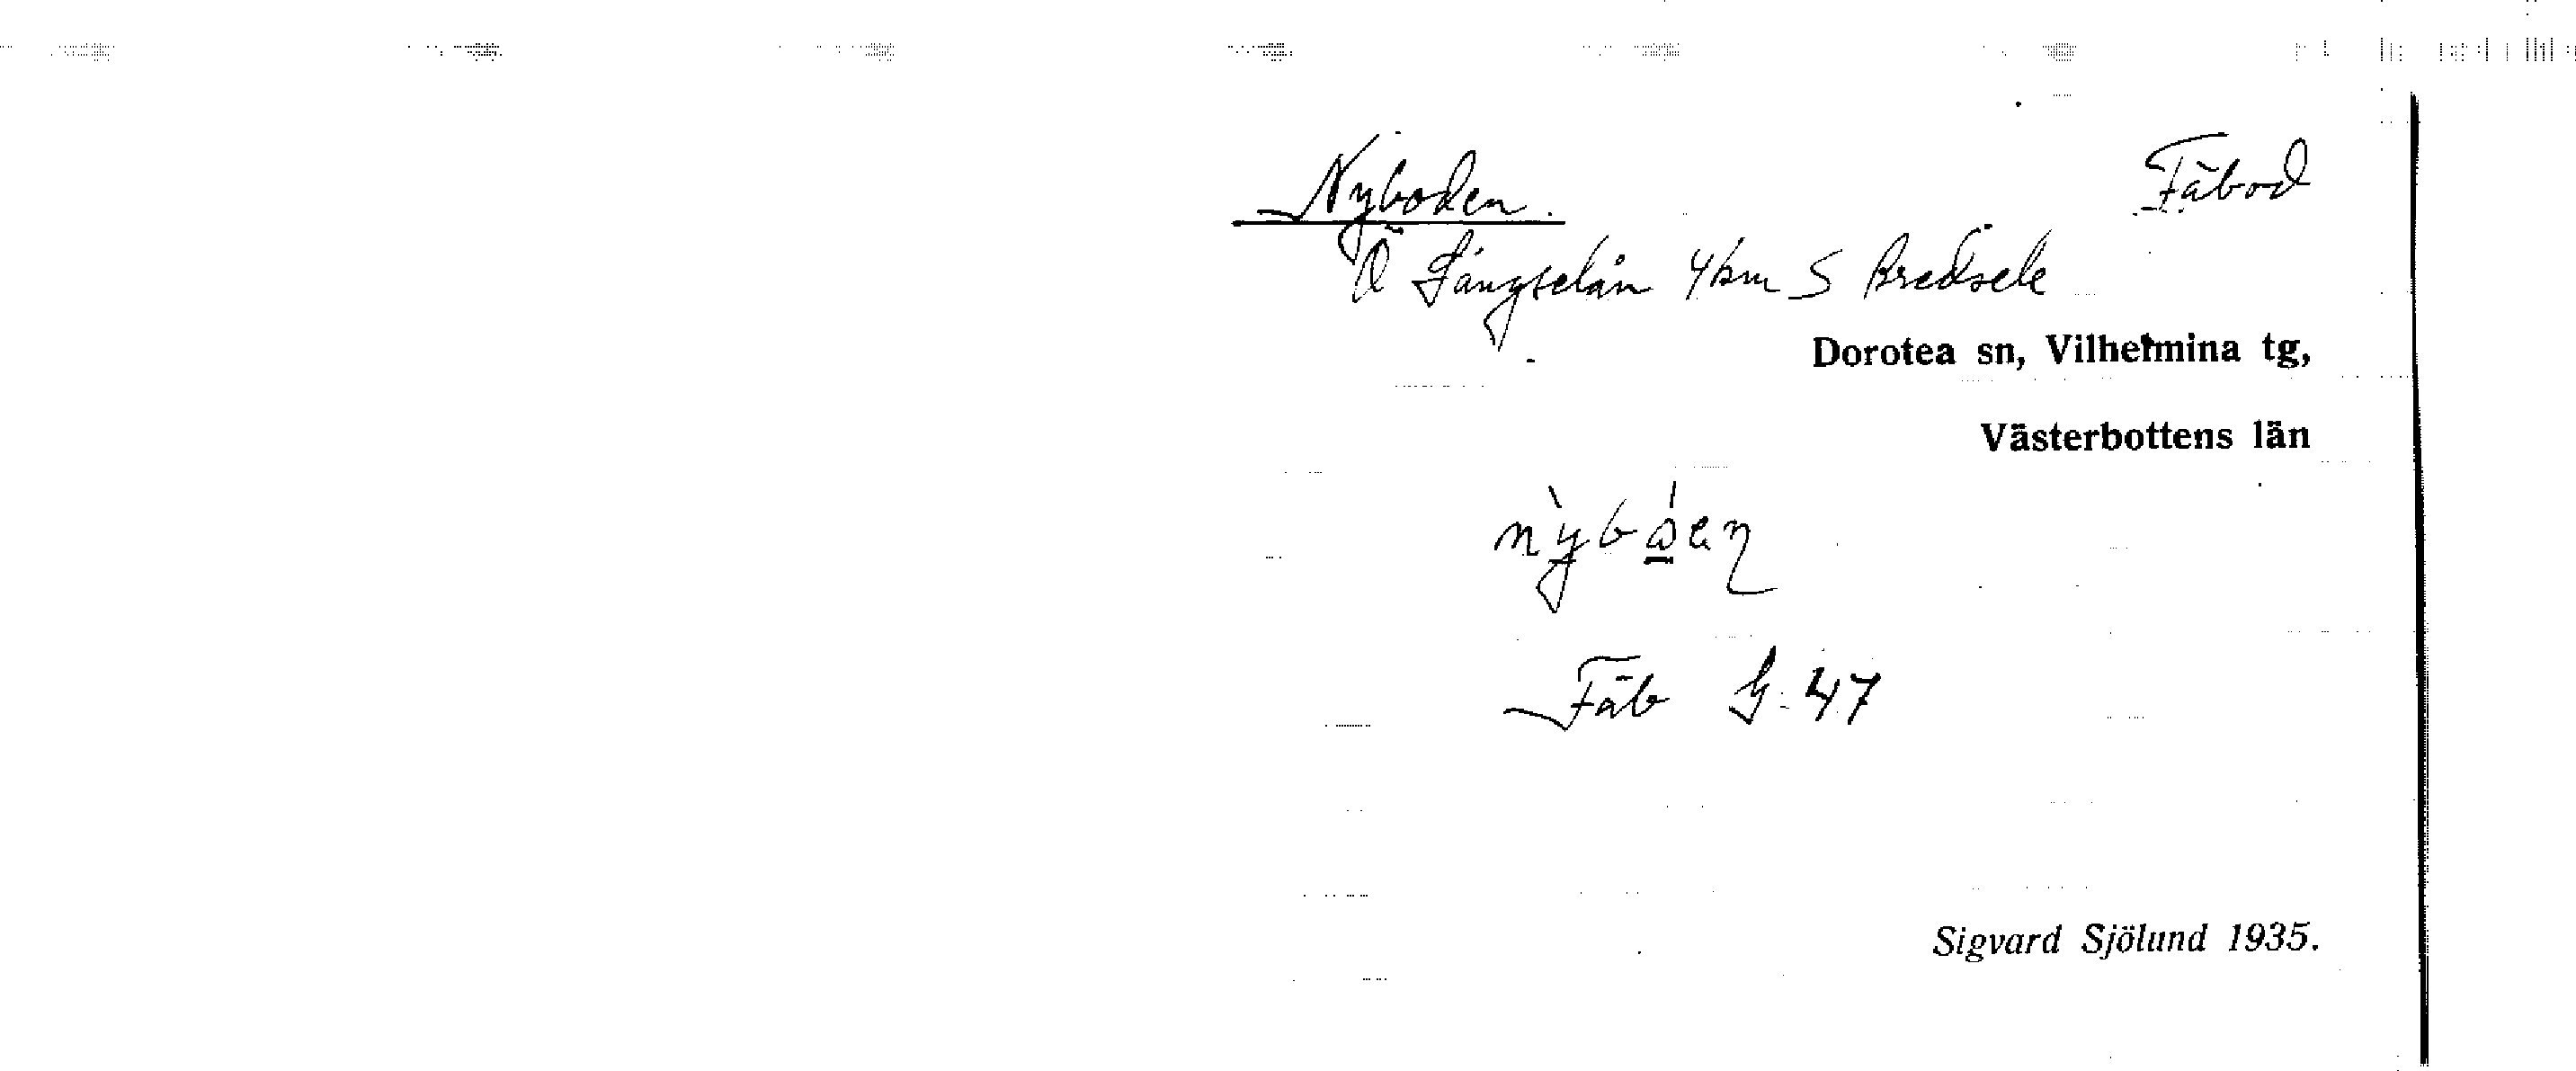 Nyboden. Fäbod
Ö Långselån 4 km S Bredsele
Dorotea sn, Vilhelmina tg,
Västerbottens län
Fäb G. 47
Sigvard Sjölund 1935.